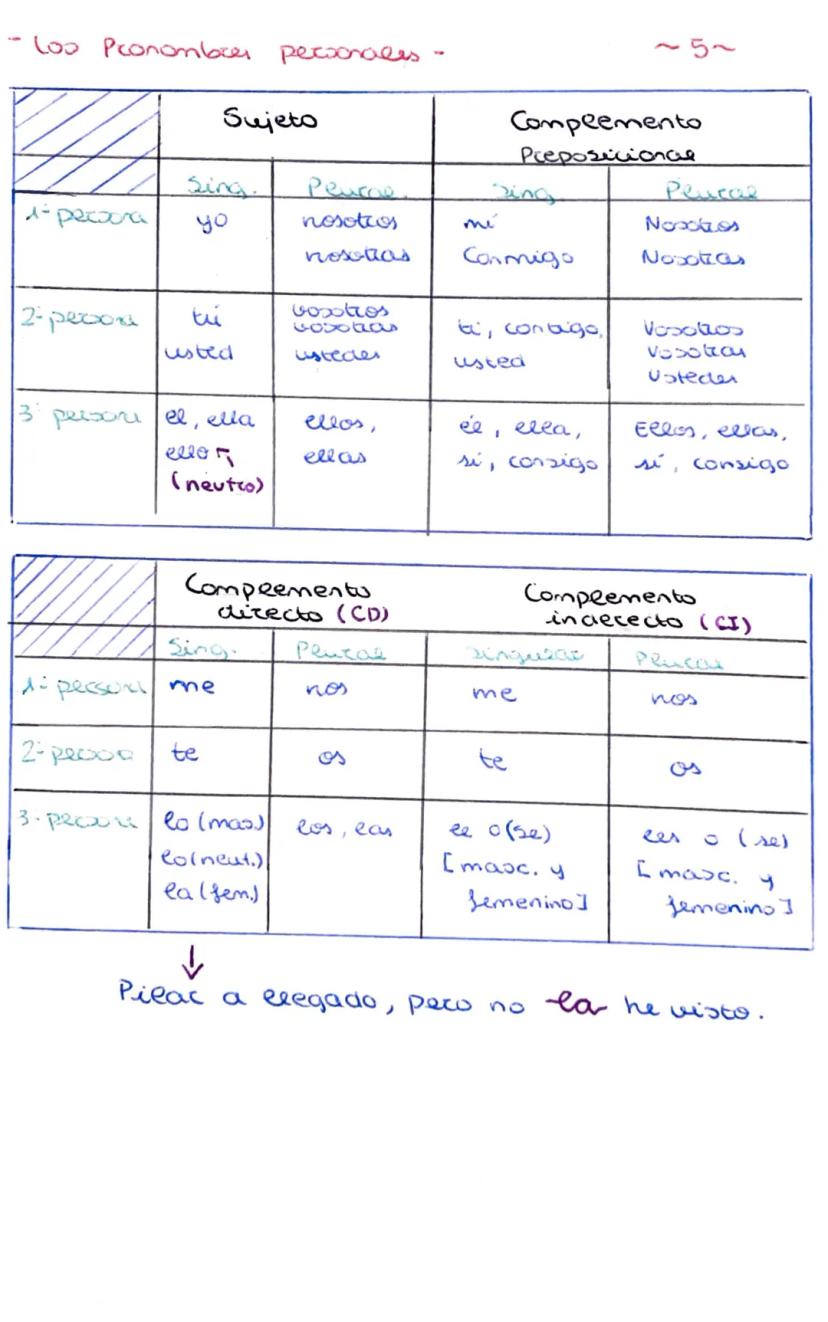 - Los Pronombres personales - ~5~
Sujeto Complemento
Preposicional
Sing. Plural Sing Plural
1ª persona yo nosotros mí Nosotros
nosotras Conmigo Nosotras
2ª persona tú vosotros ti, contigo, Vosotros
vosotras Vosotras
usted ustedes usted Ustedes
3ª persona el, ella ellos, él, ella, Ellos, ellas,
ello ellas sí, consigo sí, consigo
(neutro)
Complemento Complemento
directo (CD) indirecto (CI)
Sing. Plural Singular Plural
1ª persona me nos me nos
2ª persona te os te os
3ª persona lo (mas.) los, las le o (se) les o (se)
lo (neut.) [masc. y [masc. y
la (fem.) femenino] femenino]
Pilar a llegado, pero no la he visto.